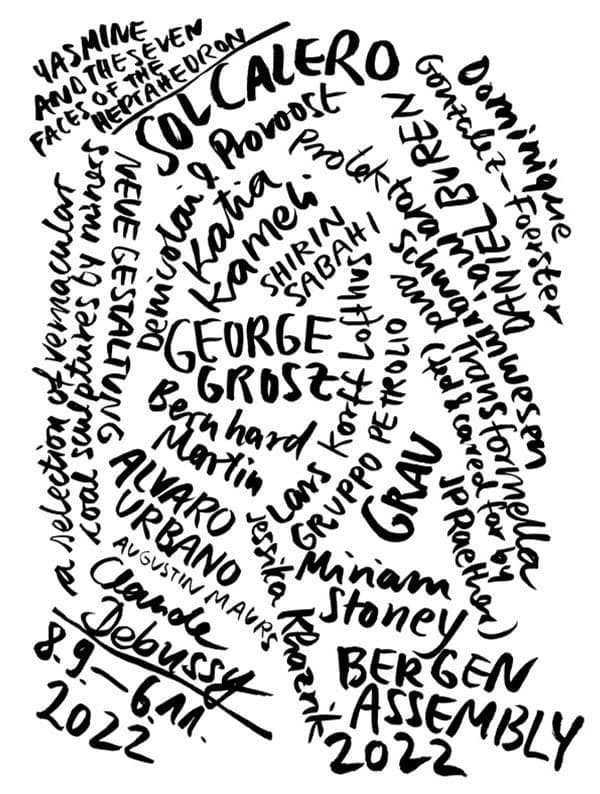 YASMINE
AND THE SEVEN
FACES OF THE
HEPTAHEDRON
SOL CALERO
Dominique
Gonzalez-Foerster
DANIEL BUREN
Denicolai & Provoost
Protektorama
Schwarmwesen
and Transformella
(fed & cared for by
JP Raether)
Katia
Kameli
SHIRIN
SABAHI
a selection of vernacular
coal sculptures by miners
NEUE GESTALTUNG
GEORGE
GROSZ
Lars Korff Lofthus
GRUPPO PETROLIO
GRAV
Bernhard
Martin
ALVARO
URBANO
AUGUSTIN MAURS
Jessika Khazrik
Miriam
Stoney
Claude
Debussy
8.9.—6.11.
2022
BERGEN
ASSEMBLY
2022